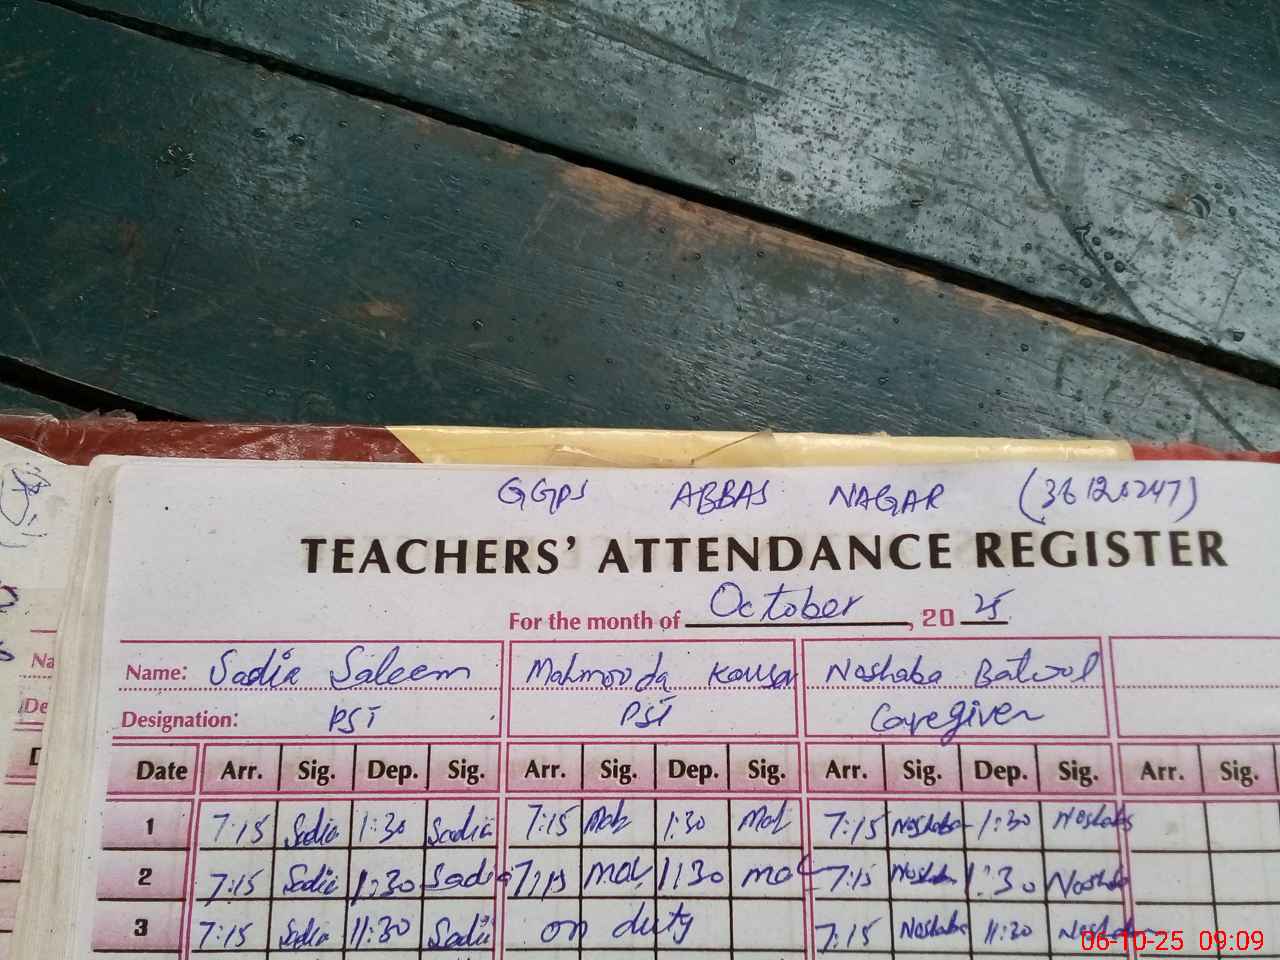 GGPS ABBAS NAGAR (36120247)
TEACHERS' ATTENDANCE REGISTER
For the month of October, 2025
Name: Sadia Saleem Mahmooda Kousar Noshaba Batool
Designation: PST PST Caregiver
Date Arr. Sig. Dep. Sig. Arr. Sig. Dep. Sig. Arr. Sig. Dep. Sig. Arr. Sig.
1 7:15 Sadia 1:30 Sadia 7:15 Mah 1:30 Mah 7:15 Noshaba 1:30 Noshaba
2 7:15 Sadia 1:30 Sadia 7:15 Mah 1:30 Mah 7:15 Noshaba 1:30 Noshaba
3 7:15 Sadia 11:30 Sadia on duty 7:15 Noshaba 11:30 Noshaba
06-10-25 09:09